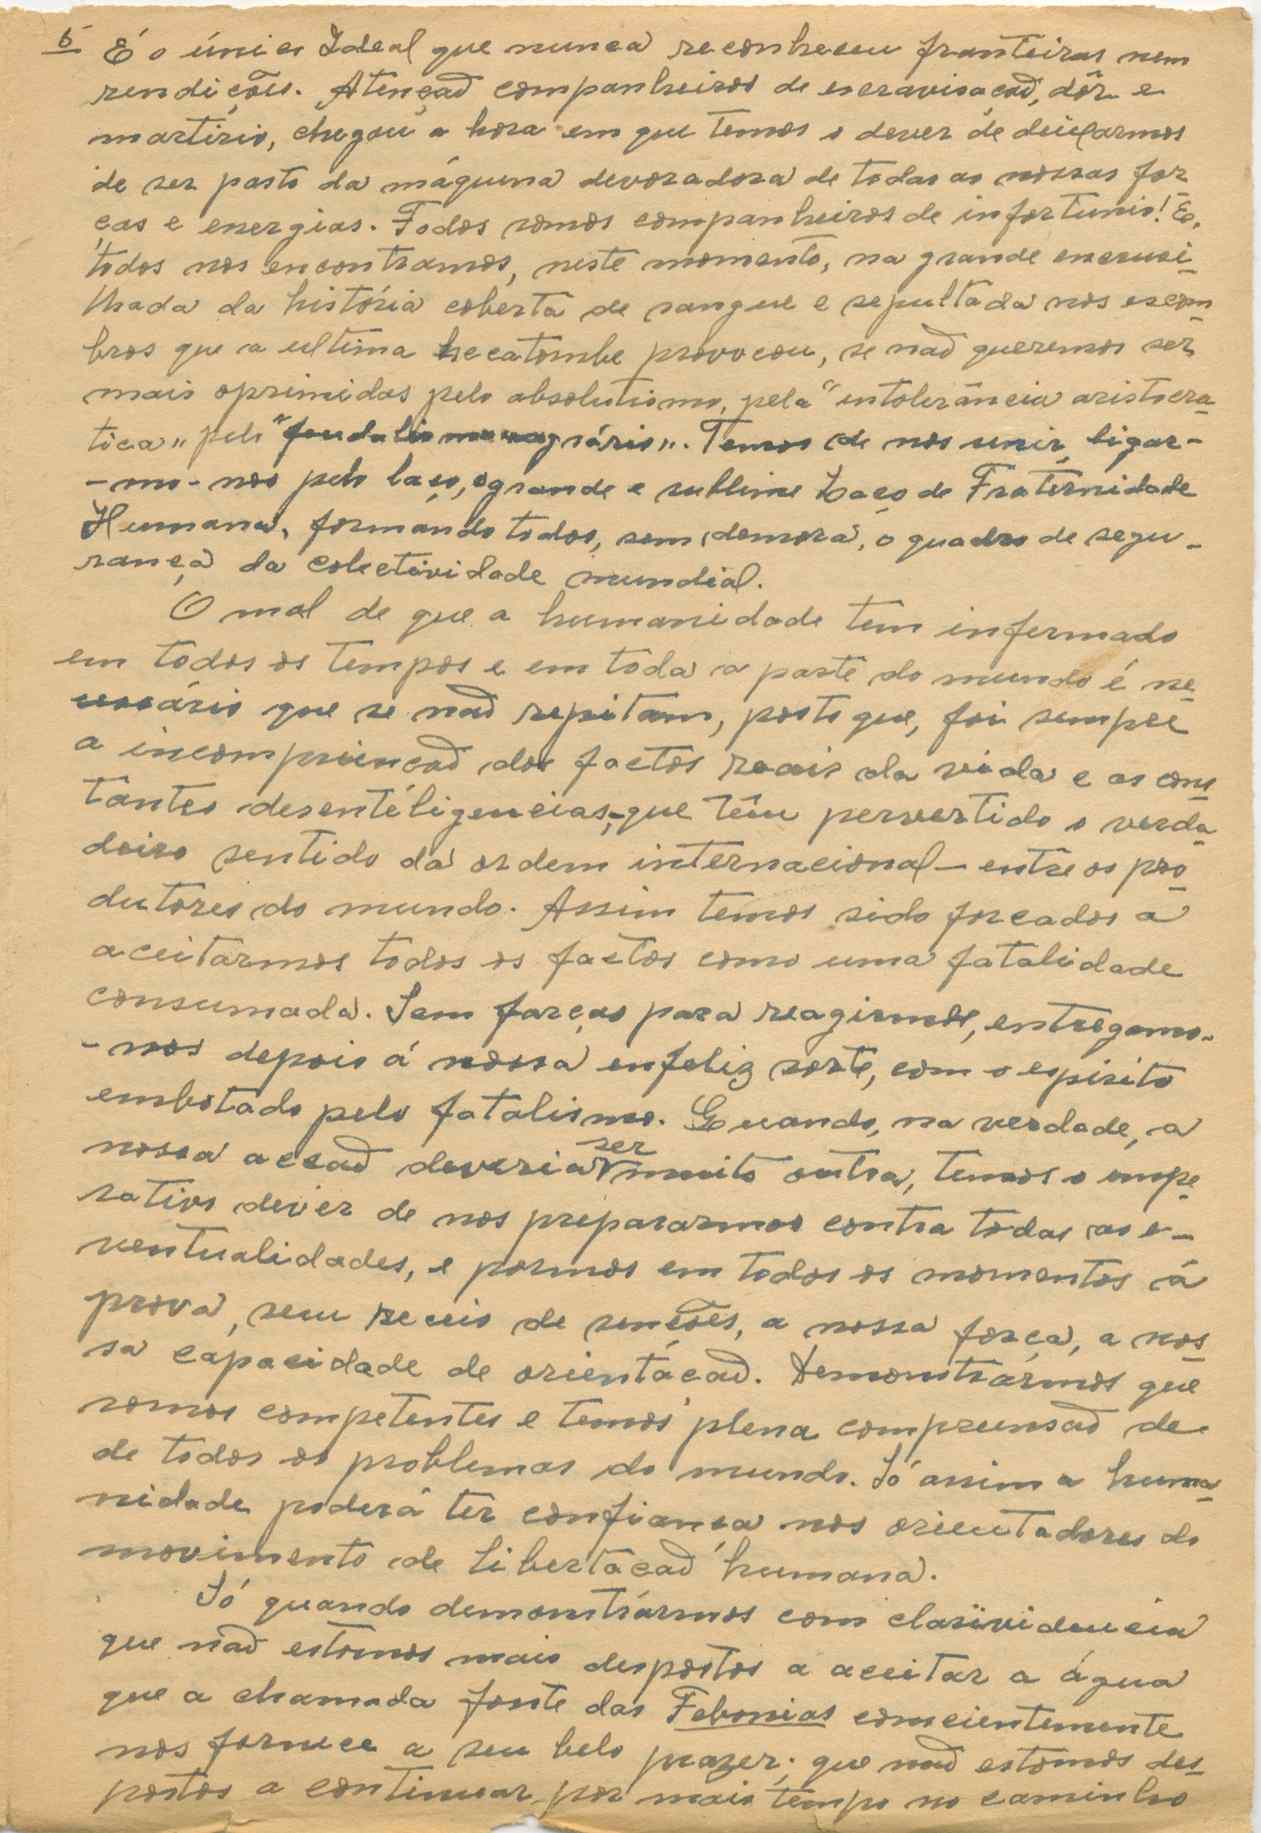 5 É o único Ideal que nunca reconheceu fronteiras nem
rendições. Atenção companheiros de escravisação, dôr e
martirio, chegou a hora em que temos o dever de deixarmos
de ser pasto da máquina devoradora de todas as nossas for
ças e energias. Todos somos companheiros de infortunio! E,
todos nos encontramos, neste momento, na grande encrusi-
lhada da história coberta de sangue e sepultada nos escom-
bros que a ultima hecatombe provocou, se não queremos ser
mais oprimidos pelo absolutismo, pela "intolerância aristocra-
tica" pelo "feudalismo agrário". Temos de nos unir, ligar-
-mo-nos pelo laço, o grande e sublime Laço de Fraternidade
Humana, formando todos, sem demora, o quadro de segu-
rança da colectividade mundial.
O mal de que a humanidade tem infermado
em todos os tempos e em toda a parte do mundo é ne-
cessário que se não repitam, posto que, foi sempre
a incompriençāo dos factos reais da vida e as cons-
tantes desentéligencias, que têm pervertido o verda-
deiro sentido da ordem internacional — entre os pro-
dutores do mundo. Assim temos sido forcados a
aceitarmos todos os factos como uma fatalidade
consumada. Sem forças para reagirmos, entregamo-
-nos depois á nossa enfeliz sorte, com o espirito
embotado pelo fatalismo. Quando, na verdade, a
nossa accão deveria ser muito outra, temos o empe-
rativo dever de nos prepararmos contra todas as e-
ventualidades, e pormos em todos os momentos á
prova, sem receio de senções, a nossa força, a nos-
sa capacidade de orientácão. Demonstrármos que
somos competentes e temos plena compreensão de
de todos os problemas do mundo. Só assim a huma-
nidade poderá ter confiança nos orientadores do
movimento de libertacão humana.
Só quando demonstrármos com clarividencia
que não estamos mais despostos a aceitar a água
que a chamada fonte das Febonias conscientemente
nos fornece a seu belo prazer; que não estamos des-
postos a continuar por mais tempo no caminho